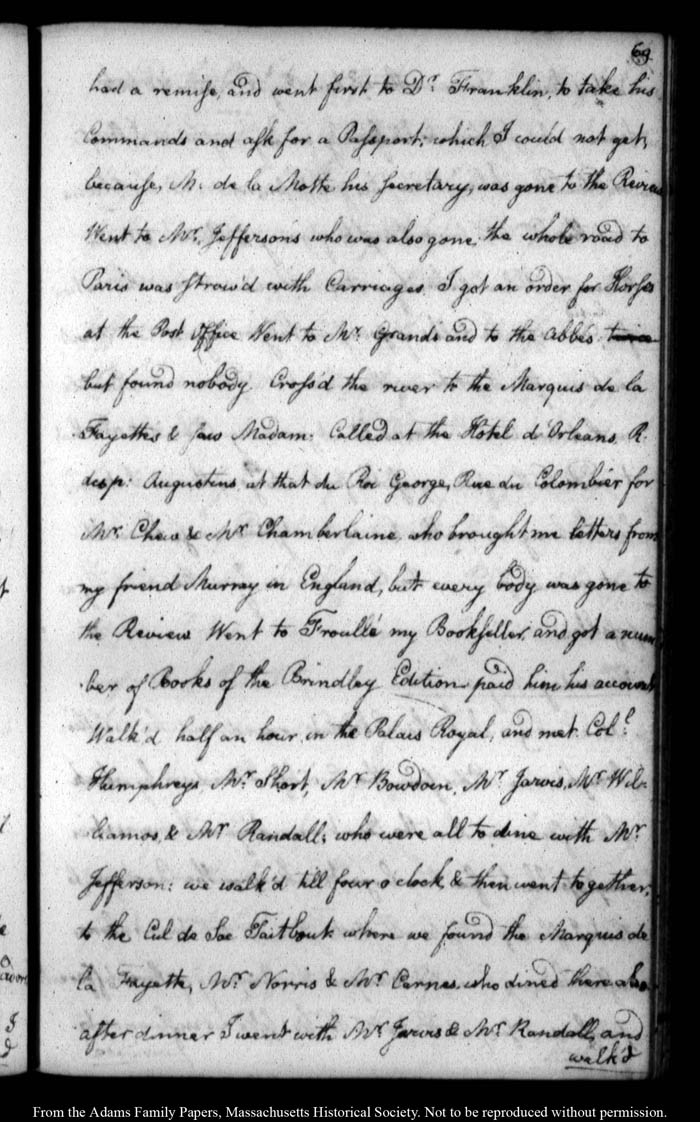 69.
had a remise, and went first to Dr. Franklin, to take his
Commands and ask for a Passport; which I could not get,
because, M. de la Motte his secretary, was gone to the Review
Went to Mr. Jefferson's who was also gone, the whole road to
Paris was strow'd with Carriages. I got an order for Horses
at the Post office Went to Mr. Grands and to the abbés
but found nobody. Cross'd the river to the Marquis de la
Fayettes & saw Madam. Called at the Hotel d'Orleans, R.
des p: Augustins, at that du Roi George, Rue du Colombier for
Mr. Chew & Mr. Chamberlaine, who brought me letters from
my friend Murray in England, but every body was gone to
the Review. Went to Froullé my Bookseller, and got a num
ber of Books of the Brindley Edition, paid him his account
Walk'd half an hour, in the Palais Royal, and met Coll.
Humphreys Mr. Short, Mr. Bowdoin, Mr. Jarvis, Mr. Wil-
liamos, & Mr. Randall; who were all to dine with Mr.
Jefferson: we walk'd till four o'clock, & then went together,
to the Cul de Sac Taitbout where we found the Marquis de
la Fayette, Mr. Norris & Mr. Carnes, who dined there also.
after dinner I went with Mr. Jarvis & Mr. Randall, and
walk'd
From the Adams Family Papers, Massachusetts Historical Society. Not to be reproduced without permission.